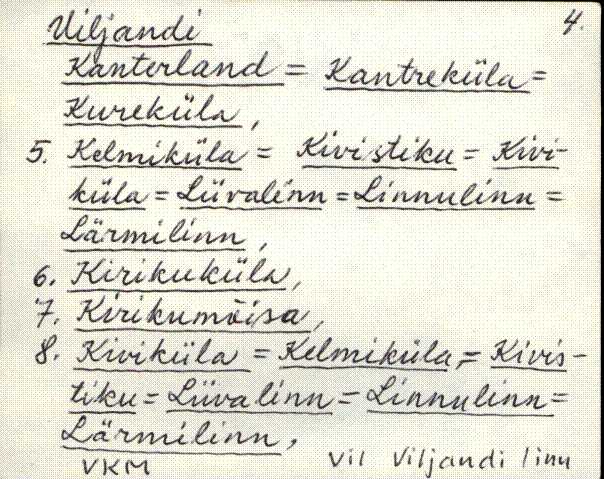 Viljandi 4.
Kanterland = Kantreküla =
Kureküla,
5. Kelmiküla = Kivistiku = Kivi-
küla = Liivalinn = Linnulinn =
Lärmilinn,
6. Kirikuküla,
7. Kirikumõisa,
8. Kiviküla = Kelmiküla, = Kivis-
tiku = Liivalinn = Linnulinn =
Lärmilinn,
VKM Vil Viljandi linn